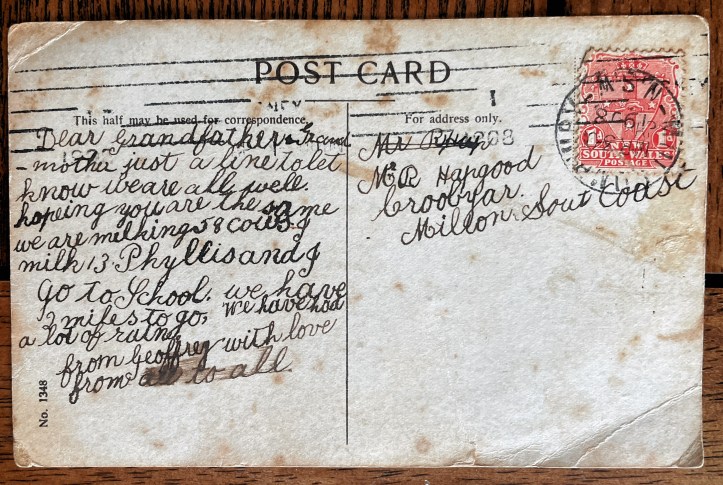 POST CARD
This half may be used for correspondence.
For address only.
Dear Grandfather Grand
-mother just a line to let
know we are all well.
hopeing you are the same
we are melking 58 cows I
milk 13. Phyllis and I
Go to School. we have
2 miles to go, We have had
a lot of raing
from Geoffrey with love
from all to all.
No. 1348
Mr
208
Mr R Hapgood
Croobyar.
Milton Sout Coast
1D 1D
NEW
SOUTH WALES
POSTAGE
N.S.W